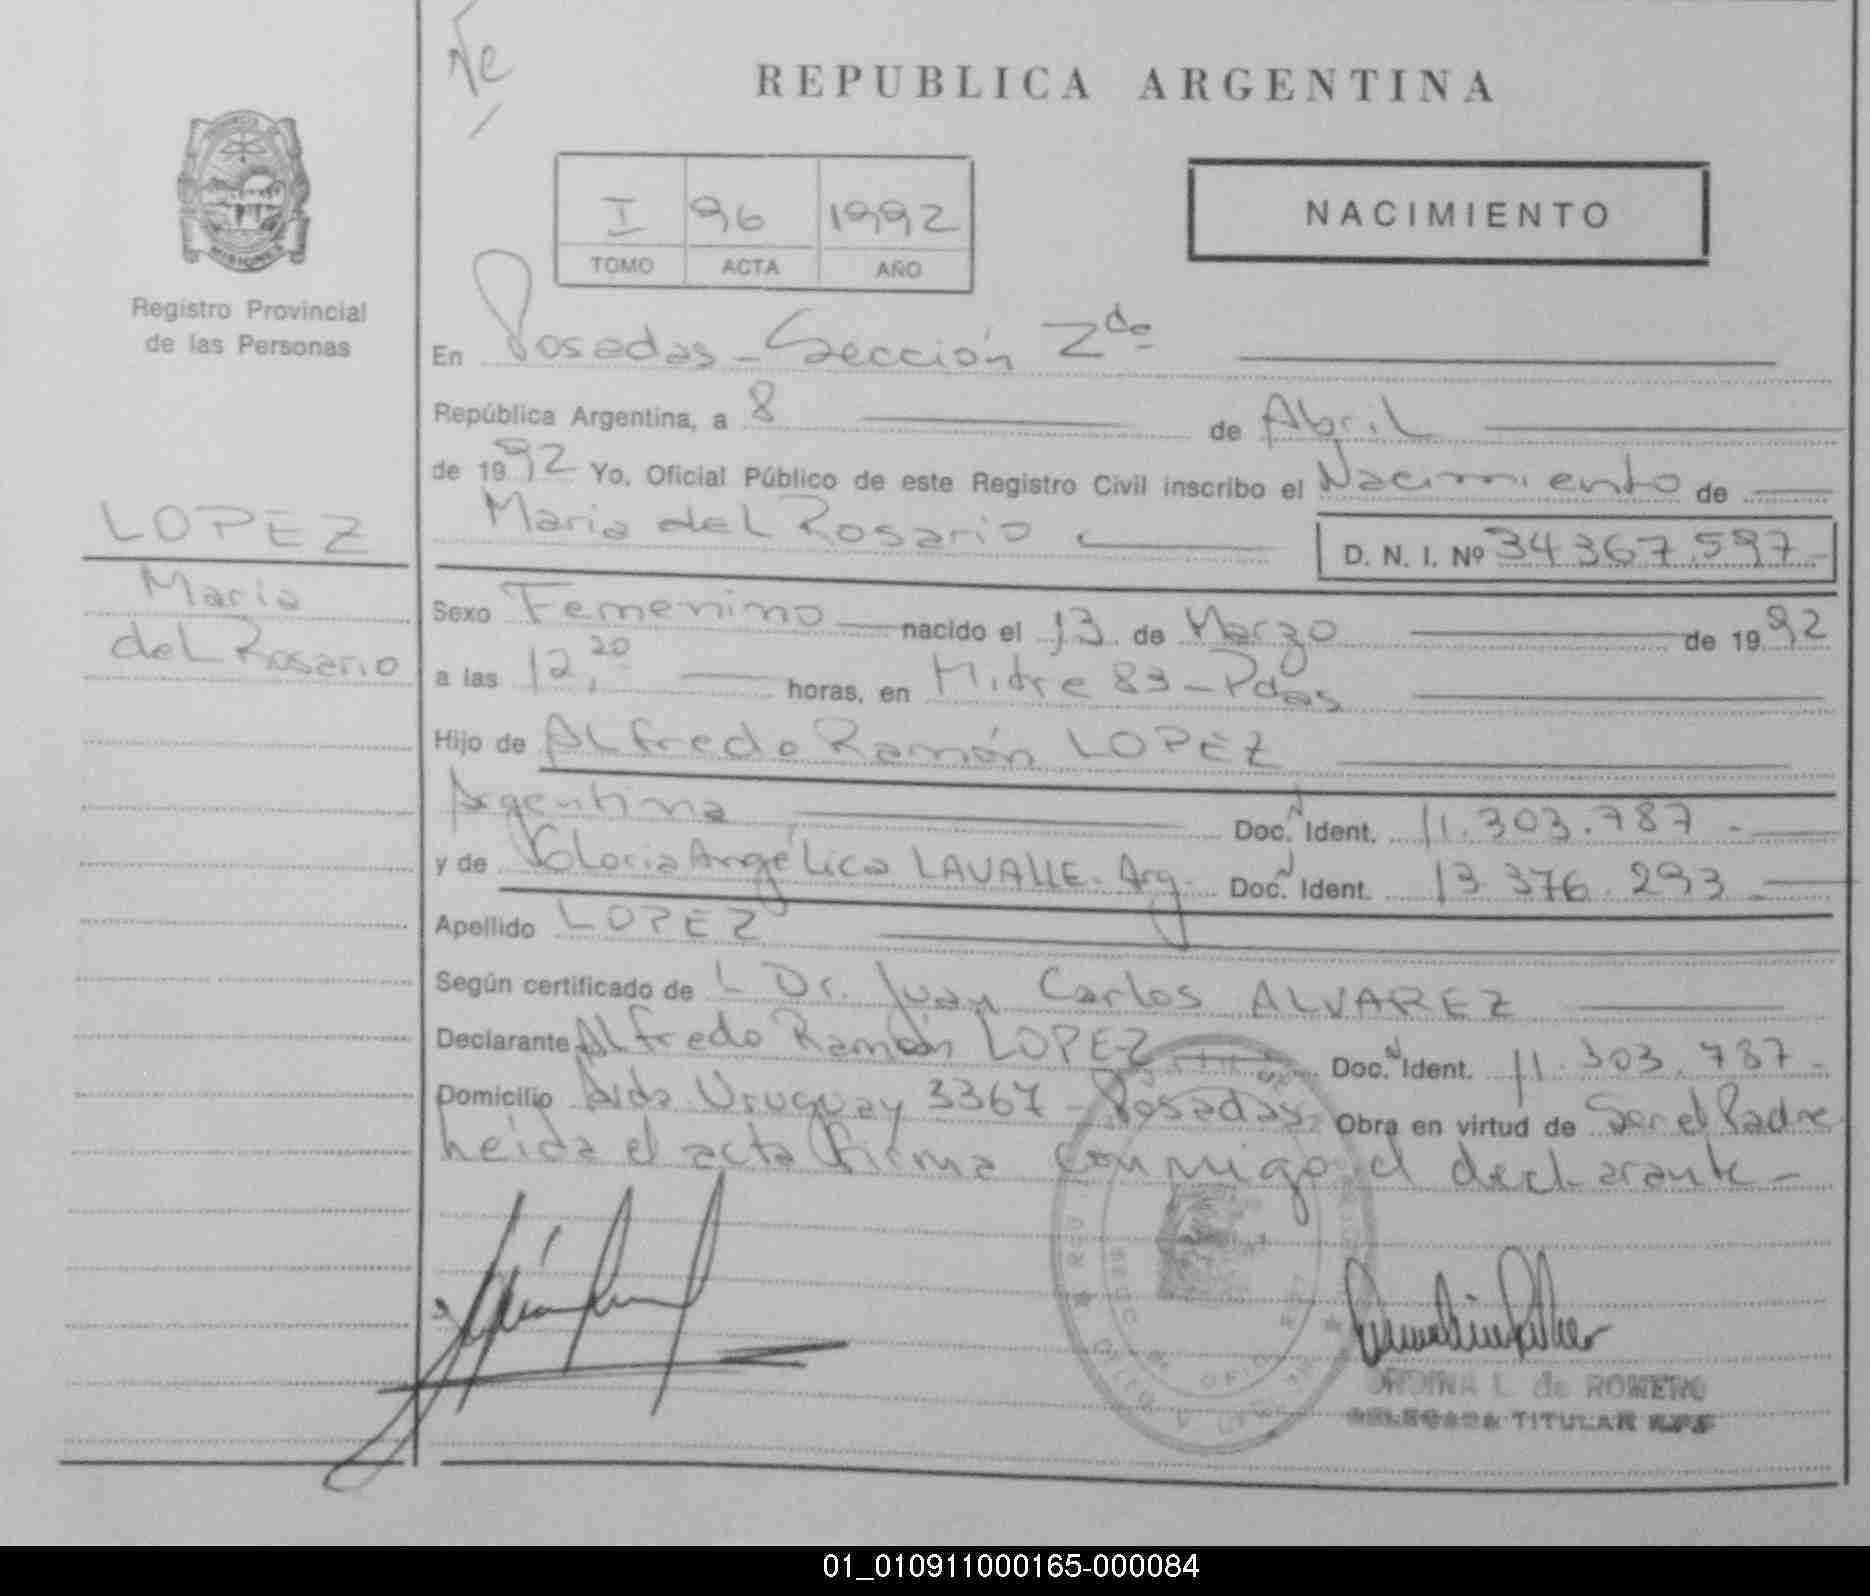 Ne
REPUBLICA ARGENTINA
PROVINCIA DE
MISIONES
Registro Provincial
de las Personas
I 96 1992
TOMO ACTA AÑO
NACIMIENTO
En Posadas - Sección 2da
República Argentina, a 8 de Abril
de 1992 Yo, Oficial Público de este Registro Civil inscribo el Nacimiento de
Maria del Rosario D. N. I. Nº 34367.597-
LOPEZ
Maria
del Rosario
Sexo Femenino nacido el 13 de Marzo de 1992
a las 12,20 horas, en Mitre 83 - Pdas
Hijo de Alfredo Ramón LOPEZ
Argentina Doc. Ident. 11.303.787-
y de Gloria Angélica LAVALLE - Arg. Doc. Ident. 13.376.293
Apellido LOPEZ
Según certificado de L Dr. Juan Carlos ALVAREZ
Declarante Alfredo Ramón LOPEZ Doc. Ident. 11.303.787-
Domicilio Avda Uruguay 3367 - Posadas Obra en virtud de Ser el Padre
heida el acta firma conmigo el declarante -
L. de ROMERO
DELEGADA TITULAR
01_010911000165-000084